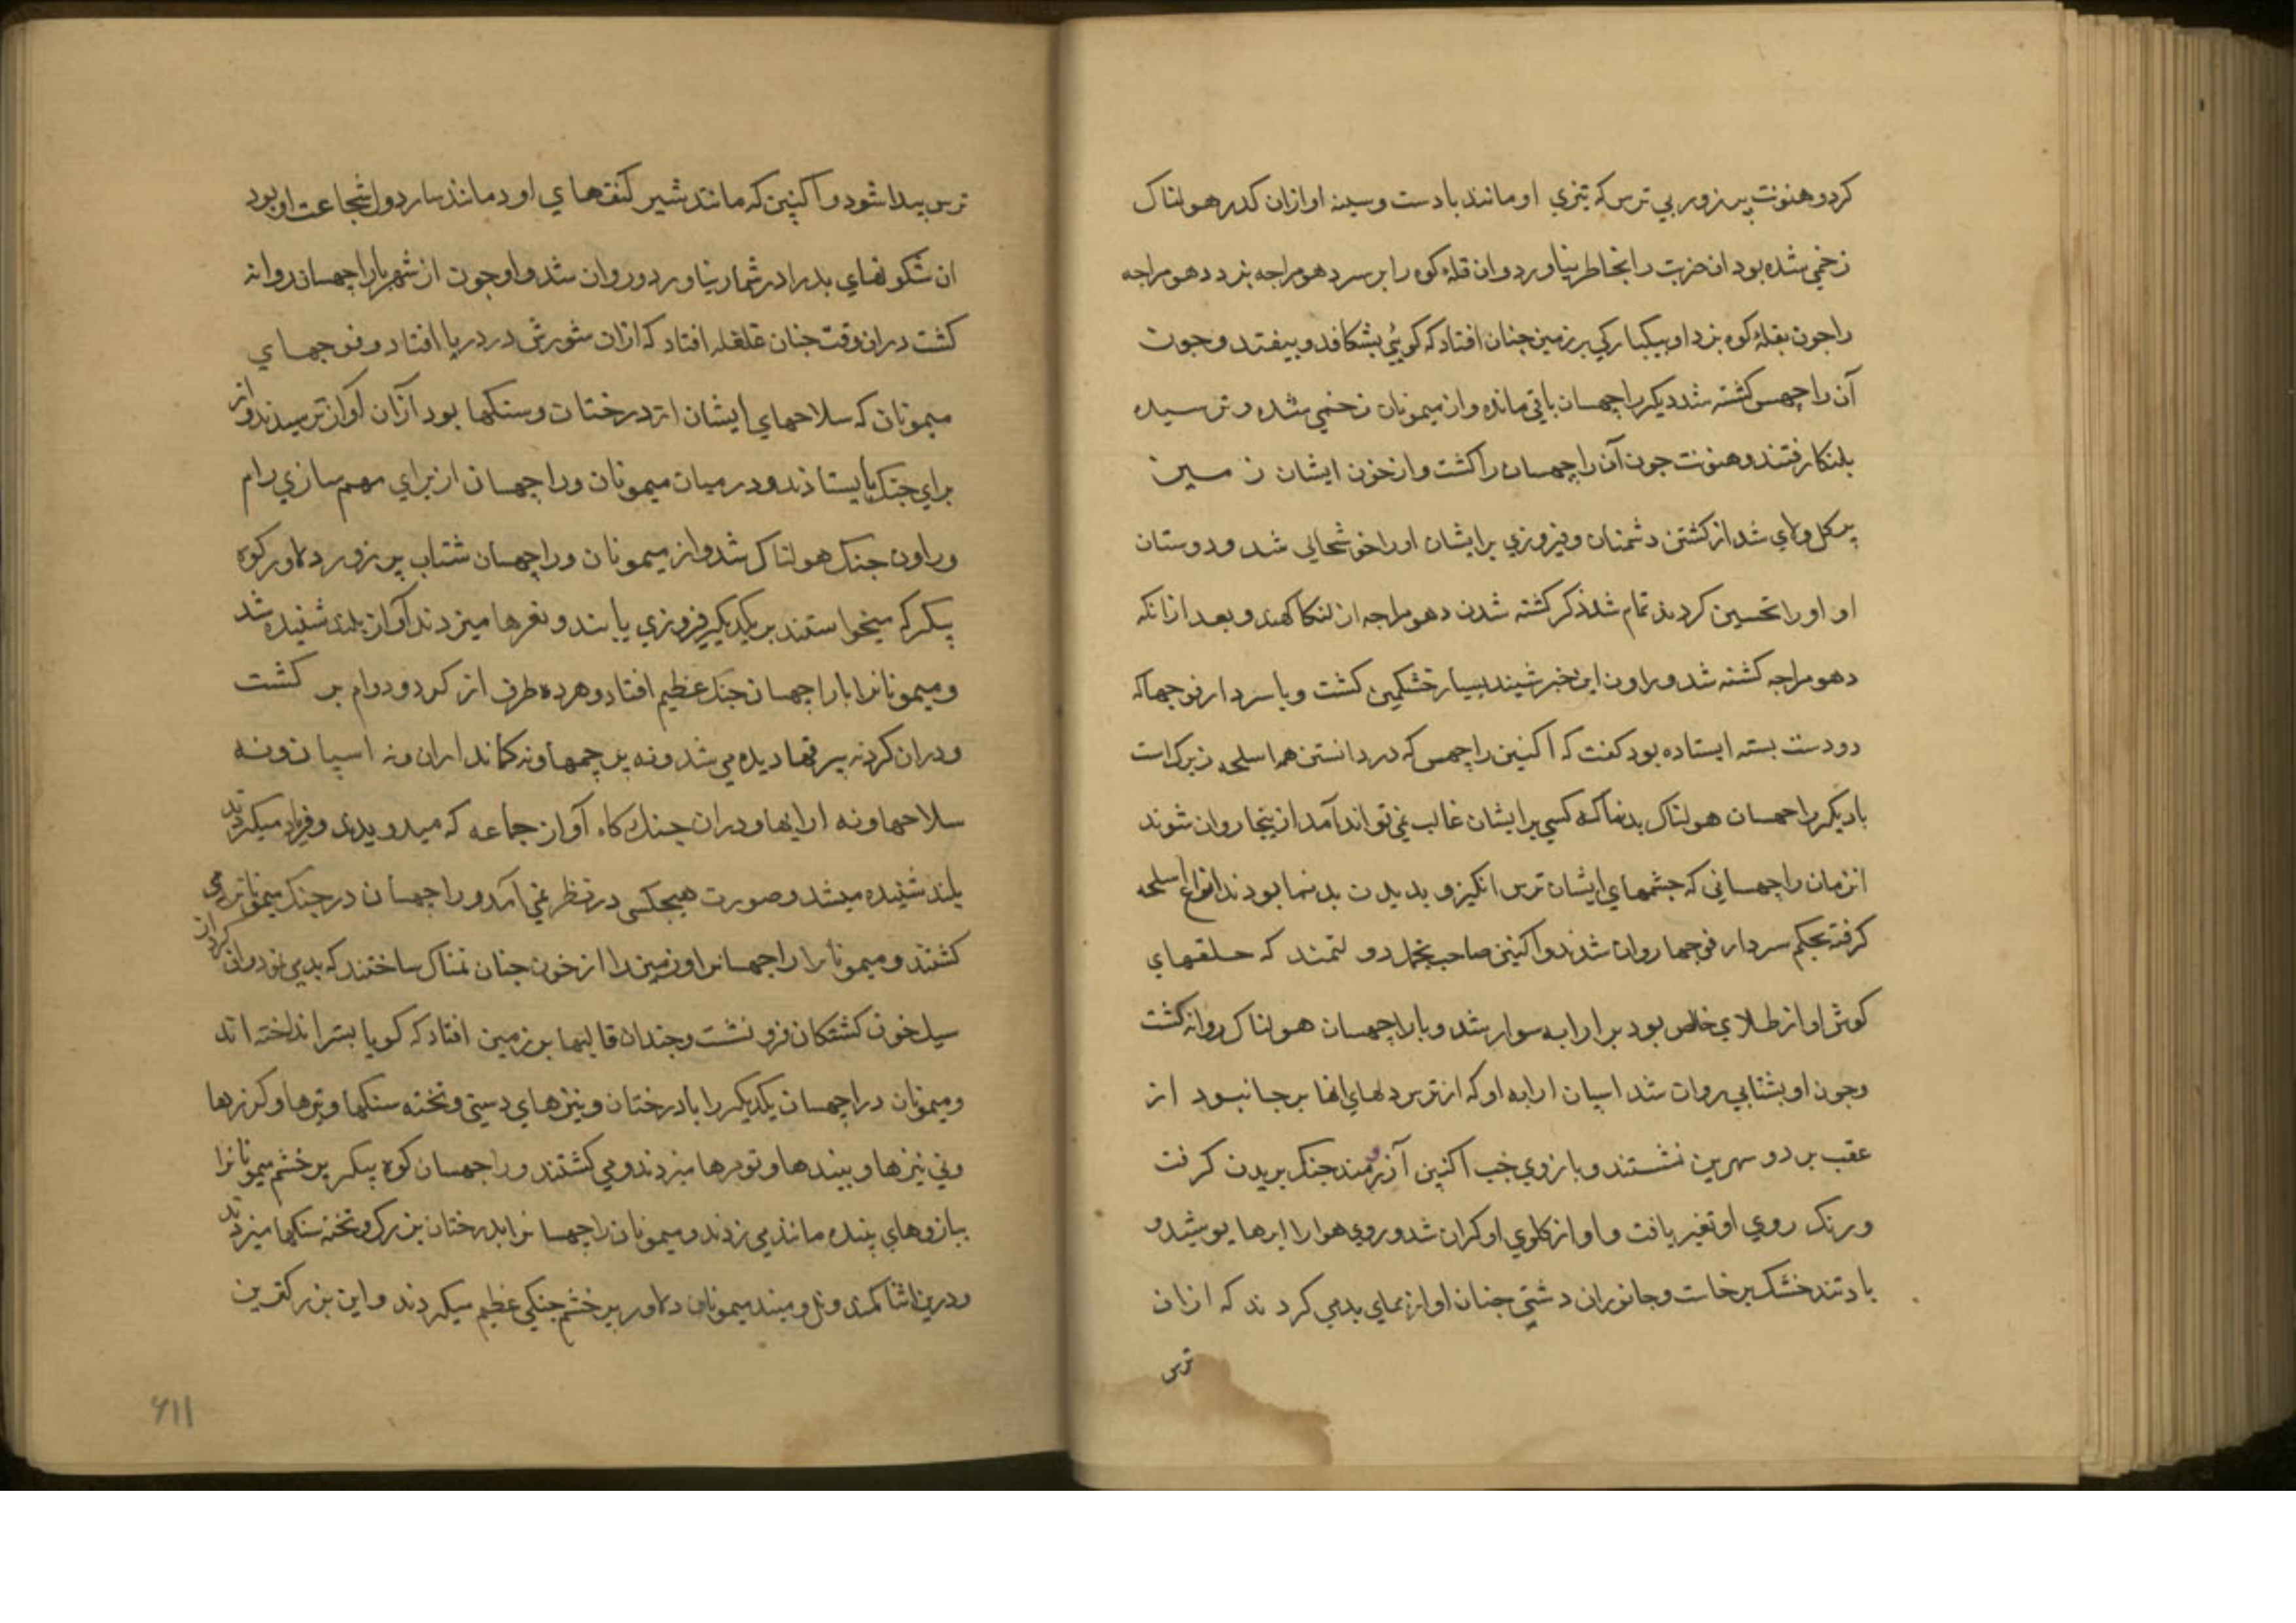 کرد و هنونت پر زور بی ترس که تیزی او مانند باد ست و سینه او ازان کدر هولناک
زخمی شده بود ان ضربت را بخاطر نیاورد و ان قله کوه را بر سر دهومراجه بزد دهومراجه
را جون بقله کوه بزد او بیکبارکی بر زمین جنان افتاد که کویی بشکافد و بیفتد و جون
آن راچهس کشته شد دیکر راچهسان باقی مانده و از میمونان زخمی شده و ترسیده
بلنکا رفتند و هنونت جون آن راچهسان را کشت و از خون ایشان زمین
پر کل و لای شد از کشتن دشمنان و فیروزی بر ایشان او را خوشحالی شد و دوستان
او او را تحسین کردند تمام شد ذکر کشته شدن دهومراجه از لنکا کهند و بعد ازانکه
دهومراجه کشته شد و راون این خبر شنید بسیار خشمکین کشت و با سردار فوجها که
دو دست بسته ایستاده بود کفت که اکنپن راچهس که در دانستن همه اسلحه زیرک است
با دیکر راچهسان هولناک بدنما که کسی بر ایشان غالب نمی تواند آمد از ینجا روان شوند
انزمان راچهسانی که جشمهای ایشان ترس انکیز و بدیدن بدنما بودند انواع اسلحه
کرفته بحکم سردار فوجها روان شدند و اکنپن صاحب تجمل دولتمند که حلقهای
کوش او از طلای خالص بود بر ارابه سوار شد و با راچهسان هولناک روانه کشت
وجون او بشتابی روان شد اسپان ارابه او که از ترس دلهای انها برجا نبود از
عقب بر دو سرین نشستند و بازوی جب اکنپن آرزومند جنک بریدن کرفت
و رنک روی او تغیر یافت و اواز کلوی او کران شد و روی هوا را ابرها پوشید و
باد تند خشک برخاست و جانوران دشتی جنان اوازهای بد می کردند که ازان
ترس
ترس پیدا شود و اکنپن که مانند شیر کتفهای او و مانند ساردول شجاعت او بود
ان شکونهای بد را در شمار نیاورد و روان شد و او جون از شهر با راچهسان روانه
کشت دران وقت جنان غلغله افتاد که ازان شورش در دریا افتاد و فوجهای
میمونان که سلاحهای ایشان از درختان و سنکها بود ازان آواز ترسیدند و از
برای جنک بایستادند و در میان میمونان و راچهسان از برای مهم سازی رام
و راون جنک هولناک شد و از میمونان و راچهسان شتاب پر زور دلاور کوه
پیکر که میخواستند بر یکدیکر فیروزی یابند و نعرها میزدند آواز بلند شنیده شد
و میمونانرا با راچهسان جنک عظیم افتاد و هر ده طرف از کرد و دوام پر کشت
و دران کرد نه بیرقها دیده می شد و نه پرچمها و نه کمانداران و نه اسپان و نه
سلاحها و نه ارابها و دران جنک کاه آواز جماعه که میدویدند و فریاد میکردند
بلند شنیده میشد و صورت هیجکس در نظر نمی آمد و راچهسان در جنک میمونانرا می
کشتند و میمونان راچهسانرا و زمین را از خون جنان نمناک ساختند که بدی نمود و ان کرد از
سیل خون کشتکان فرو نشست و جندان قالبها بر زمین افتاد که کویا بستر انداخته اند
و میمونان و راچهسان یکدیکر را با درختان و نیزهای دستی و تخته سنکها و تیرها و کرزها
و نی نیزها و بیندها و تومرها میزدند و می کشتند و راچهسان کوه پیکر پر خشم میمونانرا
ببازوهای پنده مانند می زدند و میمونان راچهسانرا بدرختان بزرک و تخته سنکها میزدند
و درین اثنا کمد و نل و میند میمونان دلاور پر خشم جنکی عظیم میکردند و این بزرکترین
۶۱۱